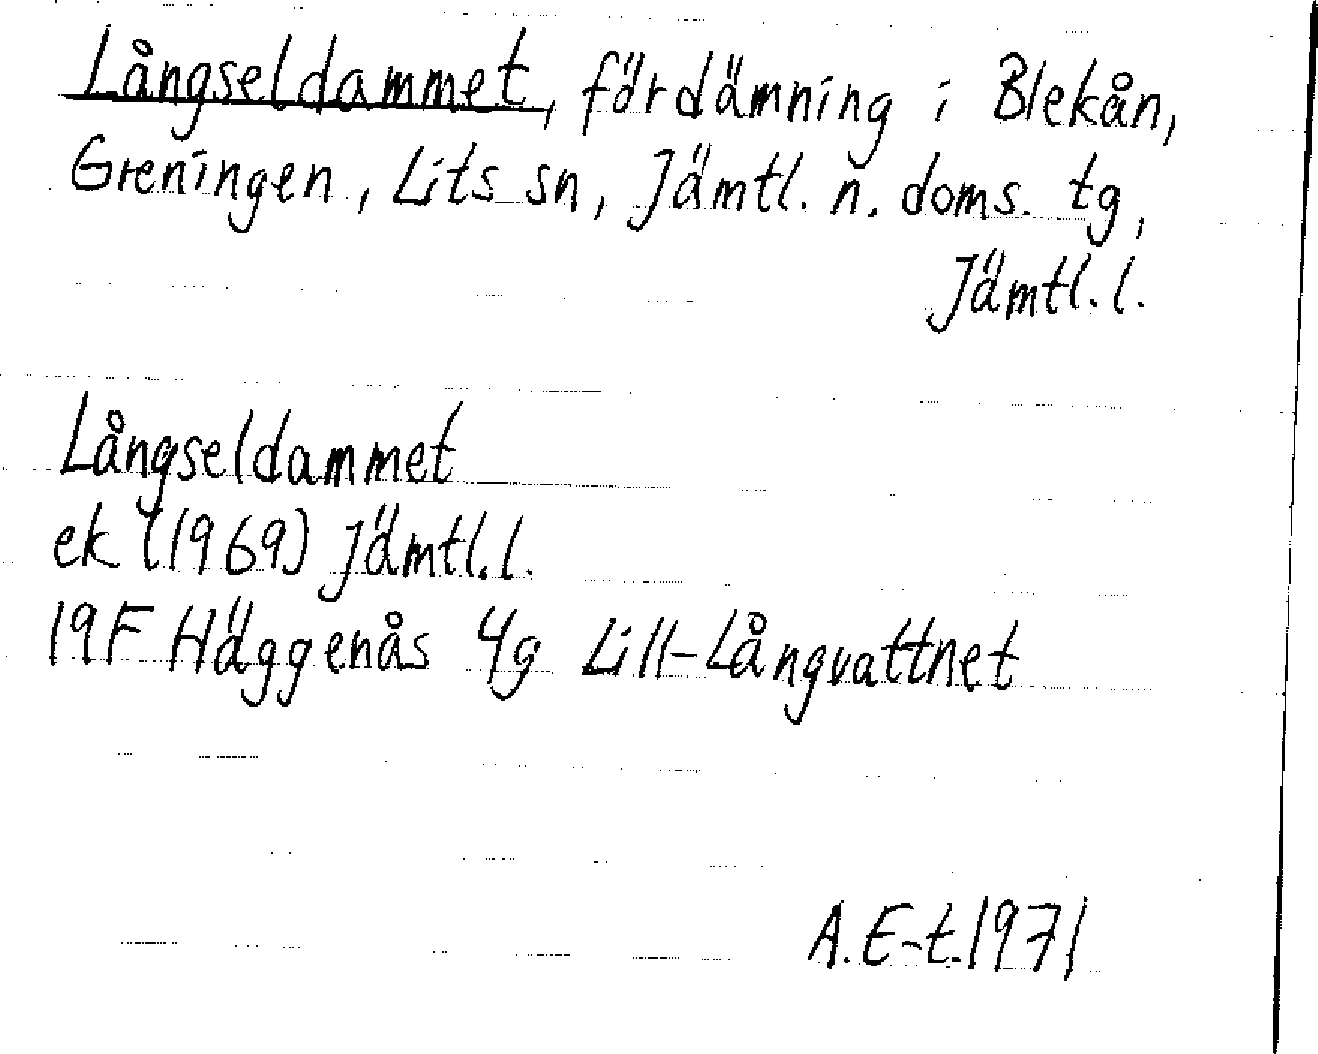 Långseldammet, fördämning i Blekån,
Greningen, Lits sn, Jämtl. n. doms. tg,
Jämtl. l.
Långseldammet
ek (1969) Jämtl. l.
19F Häggenås 4g Lill-Långvattnet
A. E-t. 1971